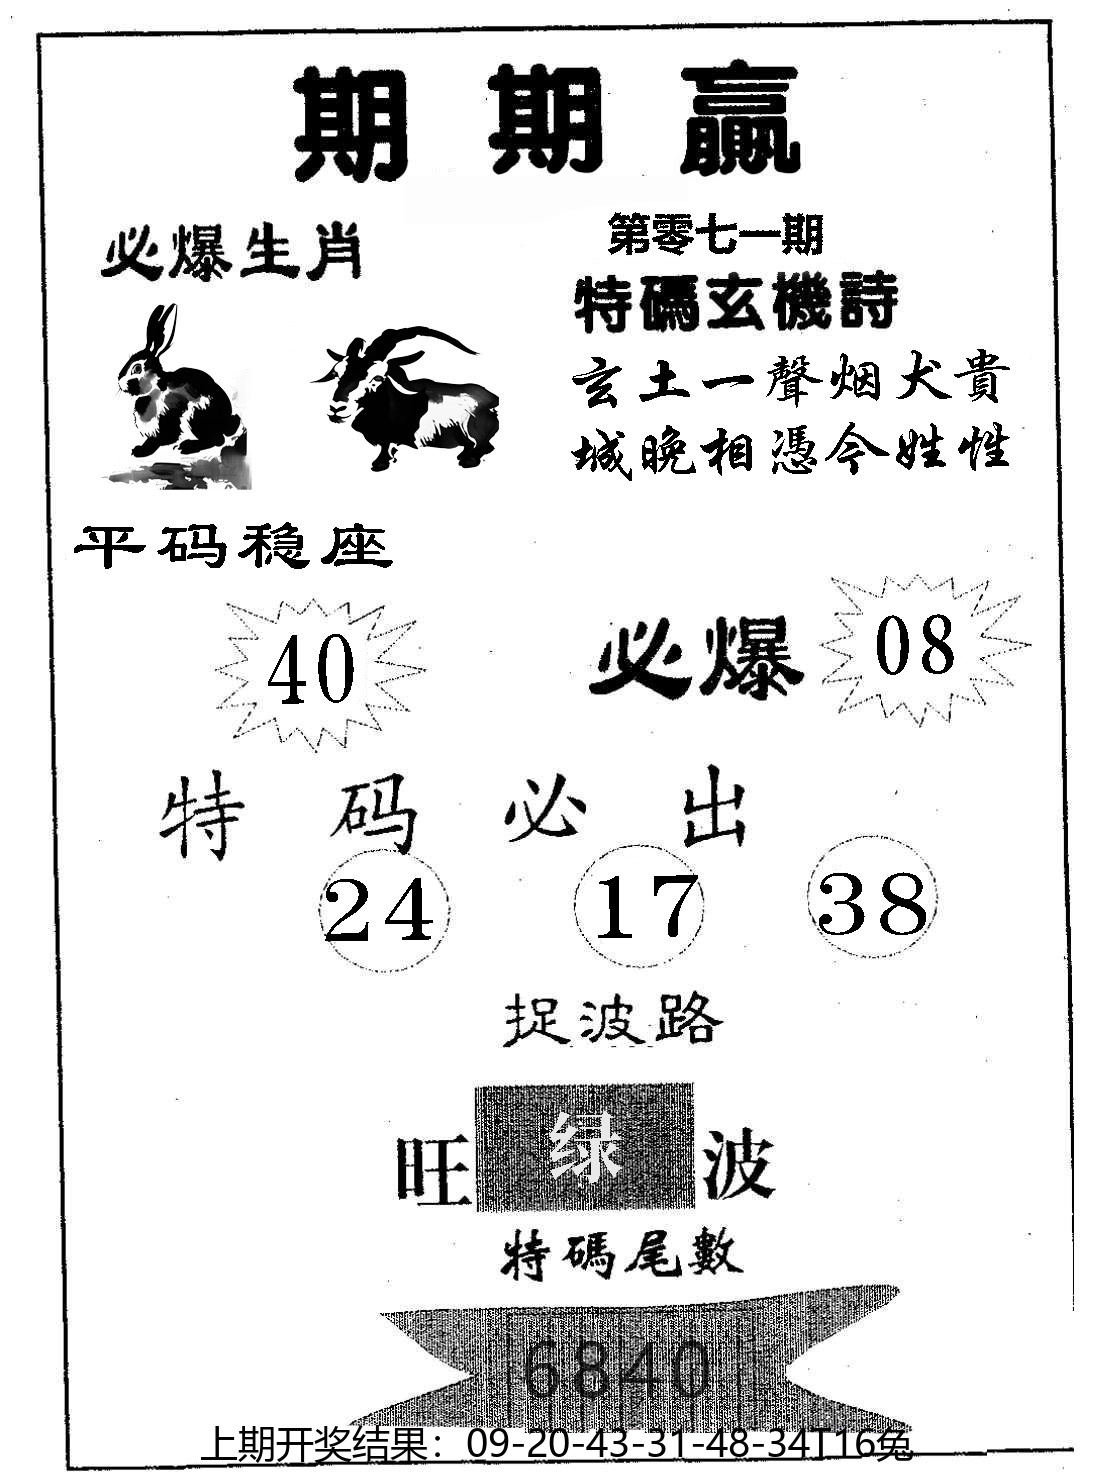 期期贏
必爆生肖
第零七一期
特碼玄機詩
玄土一聲烟犬貴
城晚相憑今姓性
平码稳座
40
必爆
08
特码必出
24 17 38
捉波路
旺绿波
特碼尾數
6840
上期开奖结果：09-20-43-31-48-34T16兔